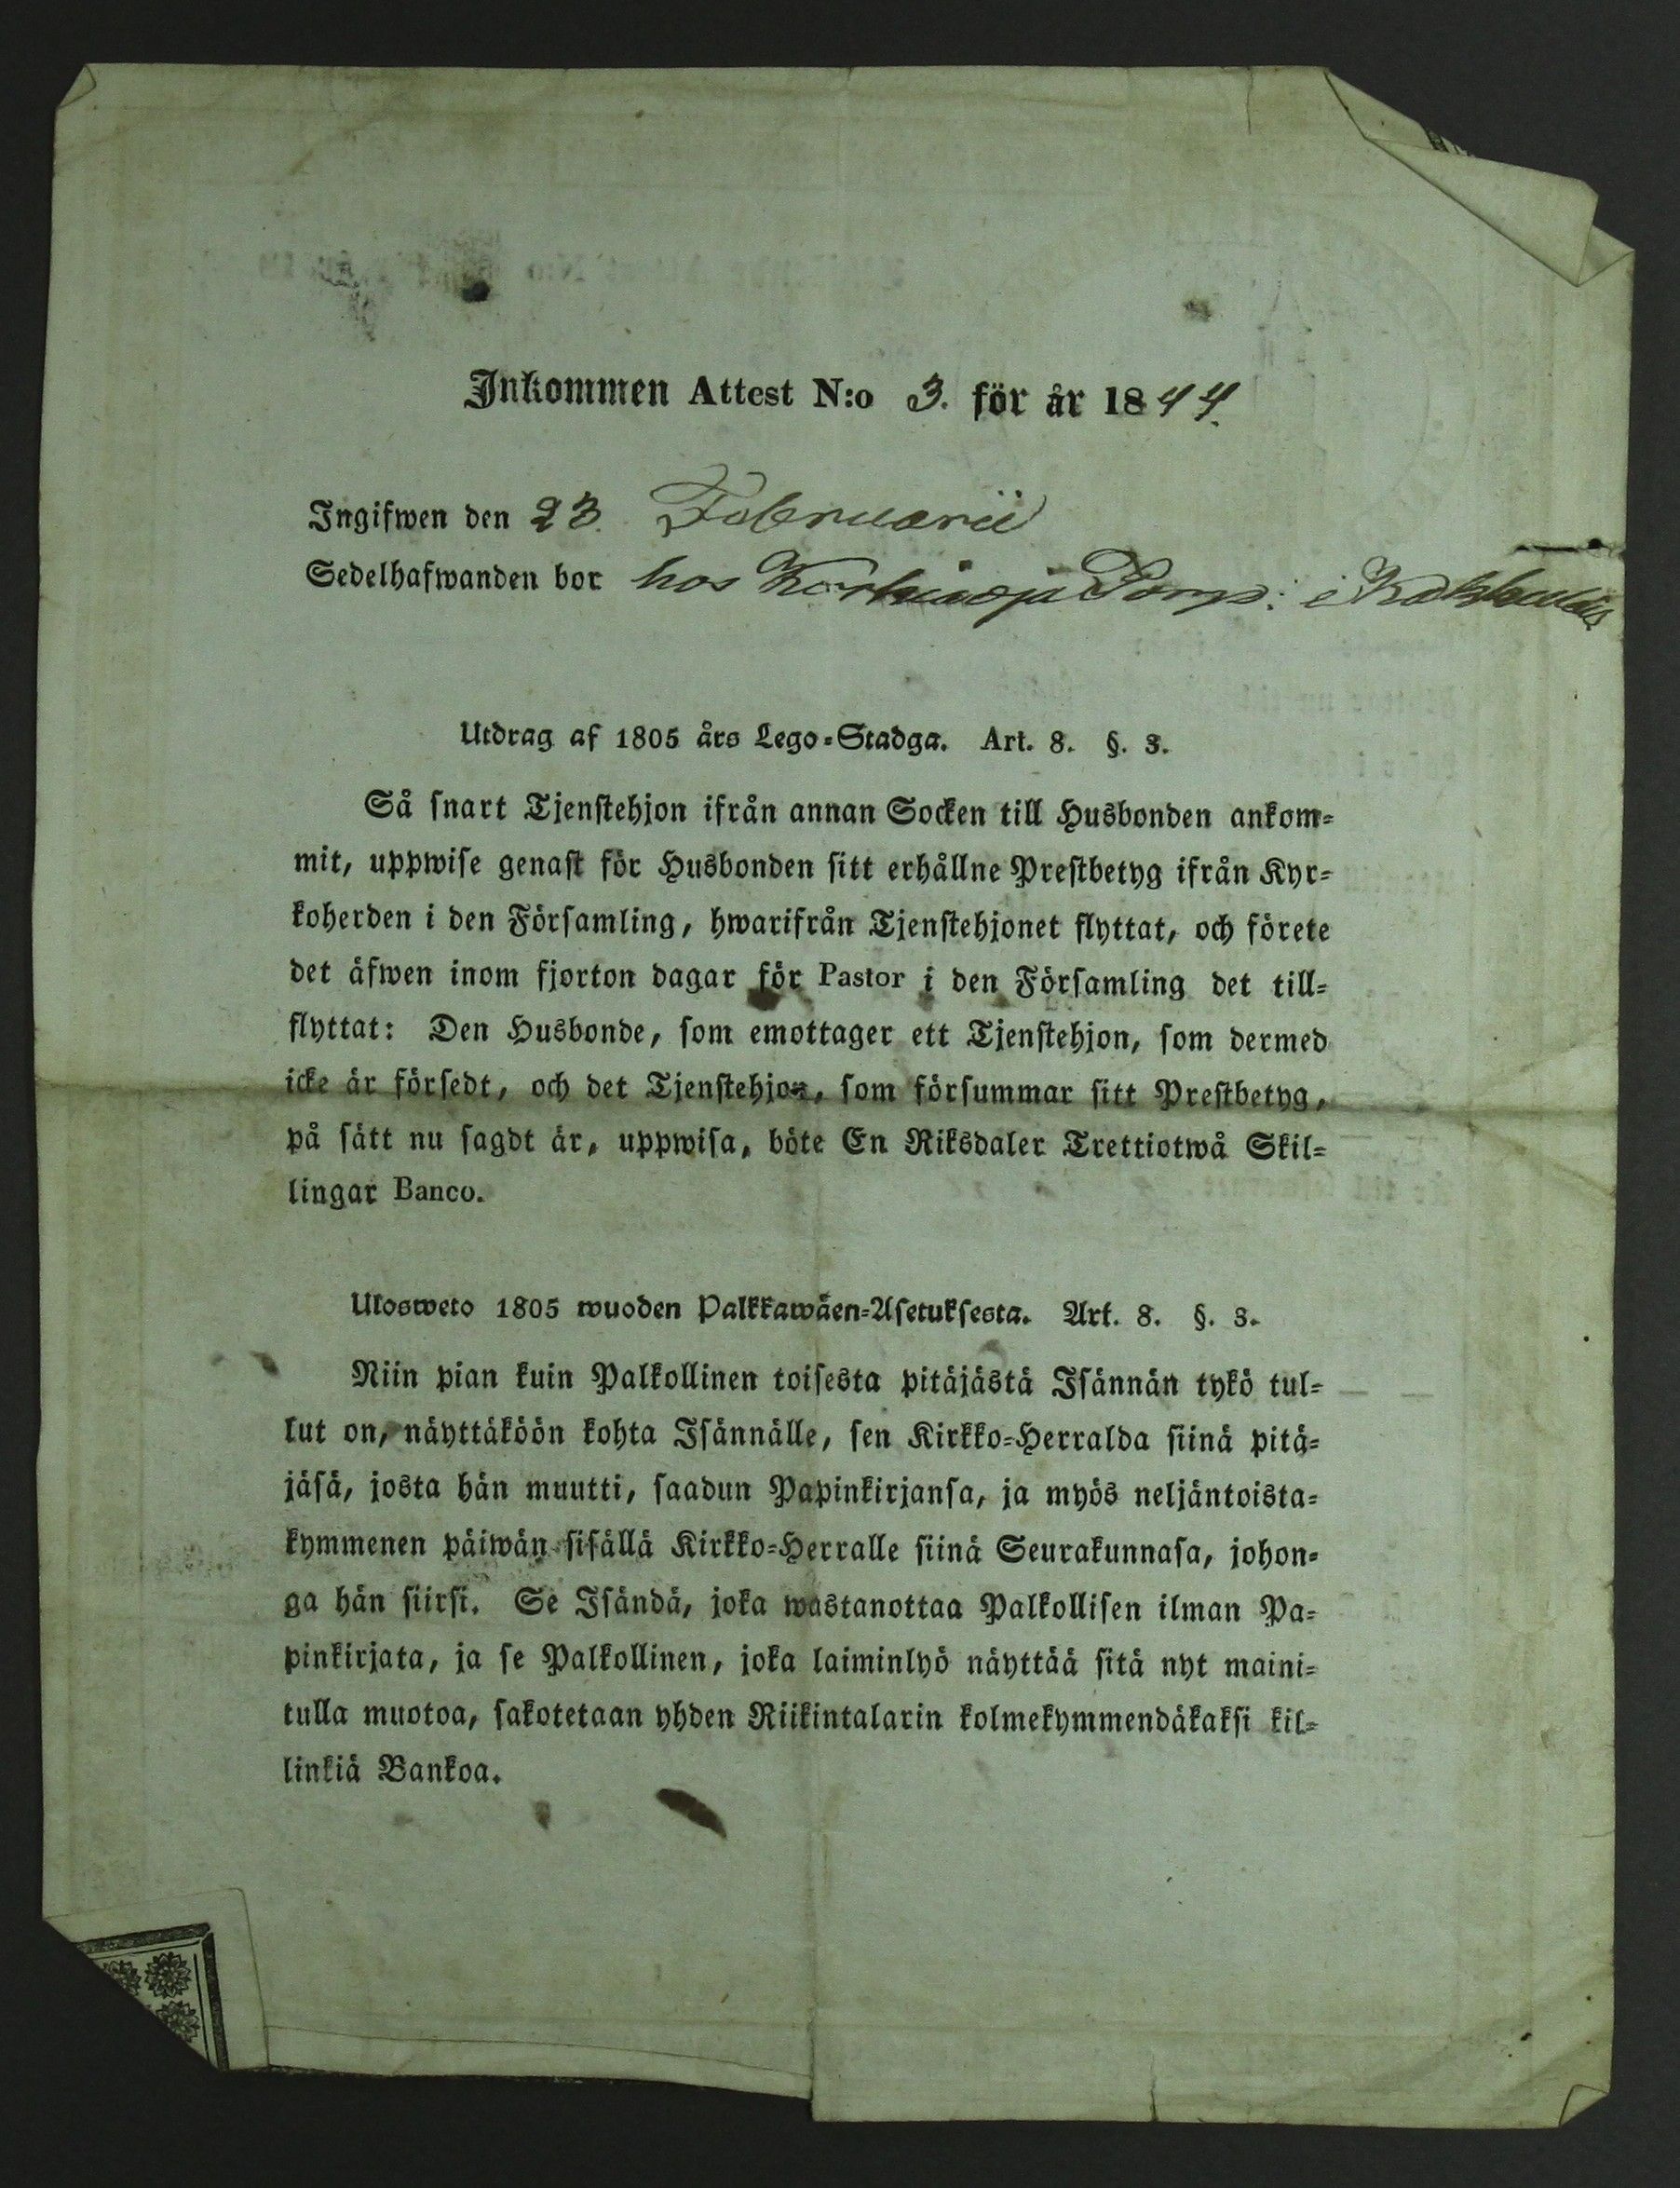 Inkommen Attest N:o 3. för år 1844.
Ingifwen den 23. Februarii
Sedelhafwanden bor hos Torp: i
Utdrag af 1805 års Lego-Stadga. Art. 8. §. 3.
Så snart Tjenstehjon ifrån annan Socken till Husbonden ankom-
mit, uppwise genast för Husbonden sitt erhållne Prestbetyg ifrån Kyr-
koherden i den Församling, hwarifrån Tjenstehjonet flyttat, och förete
det äfwen inom fjorton dagar för Pastor i den Församling det till-
flyttat: Den Husbonde, som emottager ett Tjenstehjon, som dermed
icke är försedt, och det Tjenstehjon, som försummar sitt Prestbetyg,
på sätt nu sagdt är, uppwisa, böte En Riksdaler Trettiotwå Skil-
lingar Banco.
Ulosweto 1805 wuoden Palkkawäen-Asetuksesta. Art. 8. §. 3.
Niin pian kuin Palkollinen toisesta pitäjästä Isännän tykö tul-
lut on, näyttäköön kohta Isännälle, sen Kirkko-Herralda siinä pitä-
jäsä, josta hän muutti, saadun Papinkirjansa, ja myös neljäntoista-
kymmenen päiwän sisällä Kirkko-Herralle siinä Seurakunnasa, johon-
ga hän siirsi. Se Isändä, joka wastanottaa Palkollisen ilman Pa-
pinkirjata, ja se Palkollinen, joka laiminlyö näyttää sitä nyt maini-
tulla muotoa, sakotetaan yhden Riikintalarin kolmekymmendäkaksi kil-
linkiä Bankoa.